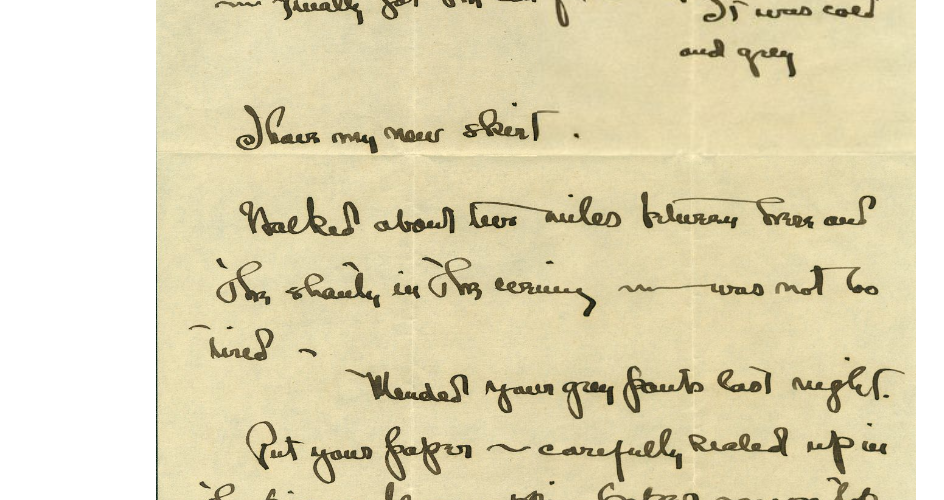 finally
It was cold
and grey
I have my new skirt.
Walked about two miles between here and
the shanty in the evening — was not too
tired ~
Mended your grey pants last night.
Put your paper ~ carefully sealed up in